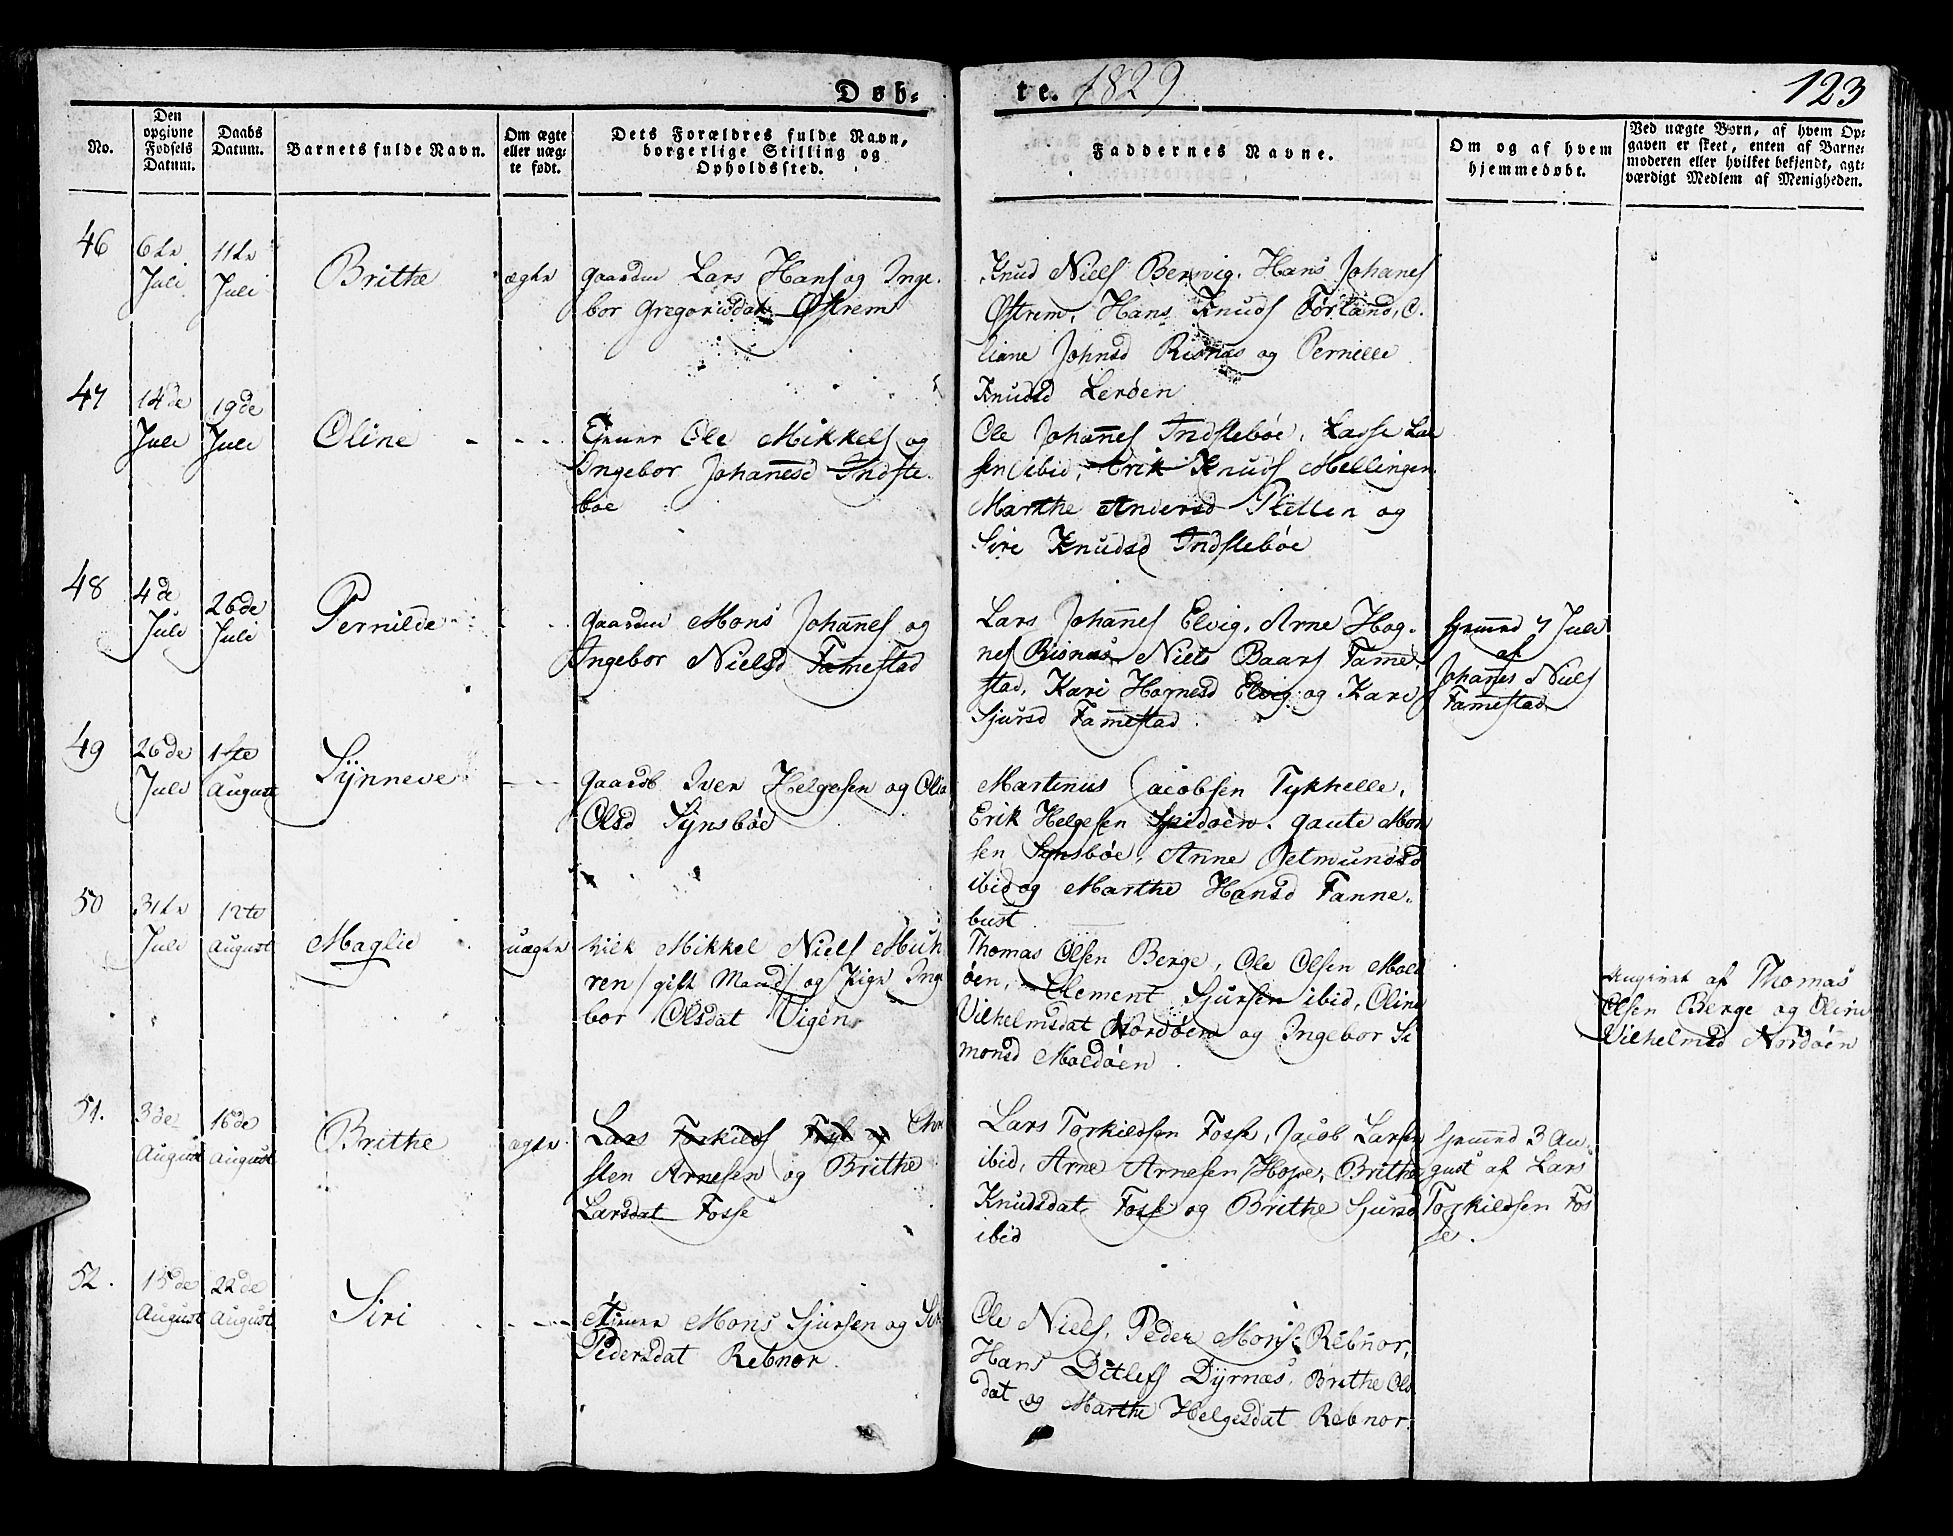 Døb-
te. 1829
123
No.
Den
opgivne
Fødsels
Datum.
Daabs
Datum.
Barnets fulde Navn.
Om ægte
eller uæg-
te født.
Dets Forældres fulde Navn,
borgerlige Stilling og
Opholdssted.
Faddernes Navne.
Om og af hvem
hjemmedøbt.
Ved uægte Børn, af hvem Op-
gaven er skeet, enten af Barne-
moderen eller hvilket bekjendt, agt-
værdigt Medlem af Menigheden.
46
6te
Juli
11te
Juli
Brithe
ægte
Lars Hans og Inge-
bor Gregorisdat Østrem
Knud Niels Bervig. Hans Johanes
Østrem, Hans Knuds Førland, O-
liane Johnsd Risnæs og Pernille
Knudsd Lerøen
47
14de
Juli
19de
Juli
Oline
Ole Mikkels og
Ingebor Johanesd Indste-
boe
Ole Johanes Indstebøe, Lasse Lar
sen ibid, Erik Knuds Mellingen
Marthe Andersd Pletten og
Sire Knudsd Indstebøe
48
4de
Juli
26de
Juli
Pernilde
Mons Johanes og
Ingebor Nielsd Famestad
Lars Johanes Elvig, Arne Hog-
nes Risnæs Niels Baars Fame-
stad, Kari Hognesd Elvig og Kari
Sjursd Famestad
7 Juli
af
Johanes Niels
Famestad
49
26de
Juli
1ste
August
Synneve
Gaardb Iver Helgesen og Olia
Olsd Synsbøe
Martinus Jacobsen Tykhelle,
Erik Helgesen Speidøen. Gaute Mon
sen Synsbøe, Anne Jetmundsd
ibid og Marthe Hansd Fanne-
bust
50
31te
Juli
12te
August
Maglie
uægte
Mikkel Niels Muh
ren / gift Mand / og Pige Inge
bor Olsdat Vigen
Thomas Olsen Berge, Ole Olsen Mold
øen, Clement Sjursen ibid, Oline
Vilhelmsdat Nordøen og Ingebor Si
monsd Moldøen
Angivet af Thomas
Olsen Berge og Oline
Vilhelmsd Nordøen
51.
3de
August
16de
August
Brithe
ægte
Lars Torkilds Fosse og Chri
sten Arnesen og Brithe
Larsdat Fosse
Lars Torkildsen Fosse, Jacob Larsen
ibid, Arne Arnesen Hope, Brithe
Knudsdat Fosse og Brithe Sjursd
ibid
3 Au-
gust af Lars
Torkildsen Fos
se.
52.
15de
August
22de
August
Siri
Mons Sjursen og Siri
Pedersdat Rebnor.
Ole Niels, Peder Mons Rebnor,
Hans Ditlefs Dyrnæs, Brithe Ols
dat og Marthe Helgesdat Rebnor.